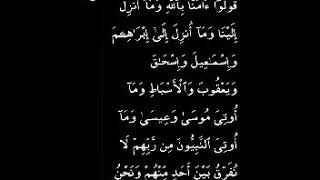 قُولُوٓا۟ ءَامَنَّا بِٱللَّهِ وَمَآ أُنزِلَ
إِلَيْنَا وَمَآ أُنزِلَ إِلَىٰٓ إِبْرَٰهِـۧمَ
وَإِسْمَـٰعِيلَ وَإِسْحَـٰقَ
وَيَعْقُوبَ وَٱلْأَسْبَاطِ وَمَآ
أُوتِىَ مُوسَىٰ وَعِيسَىٰ وَمَآ
أُوتِىَ ٱلنَّبِيُّونَ مِن رَّبِّهِمْ لَا
نُفَرِّقُ بَيْنَ أَحَدٍ مِّنْهُمْ وَنَحْنُ